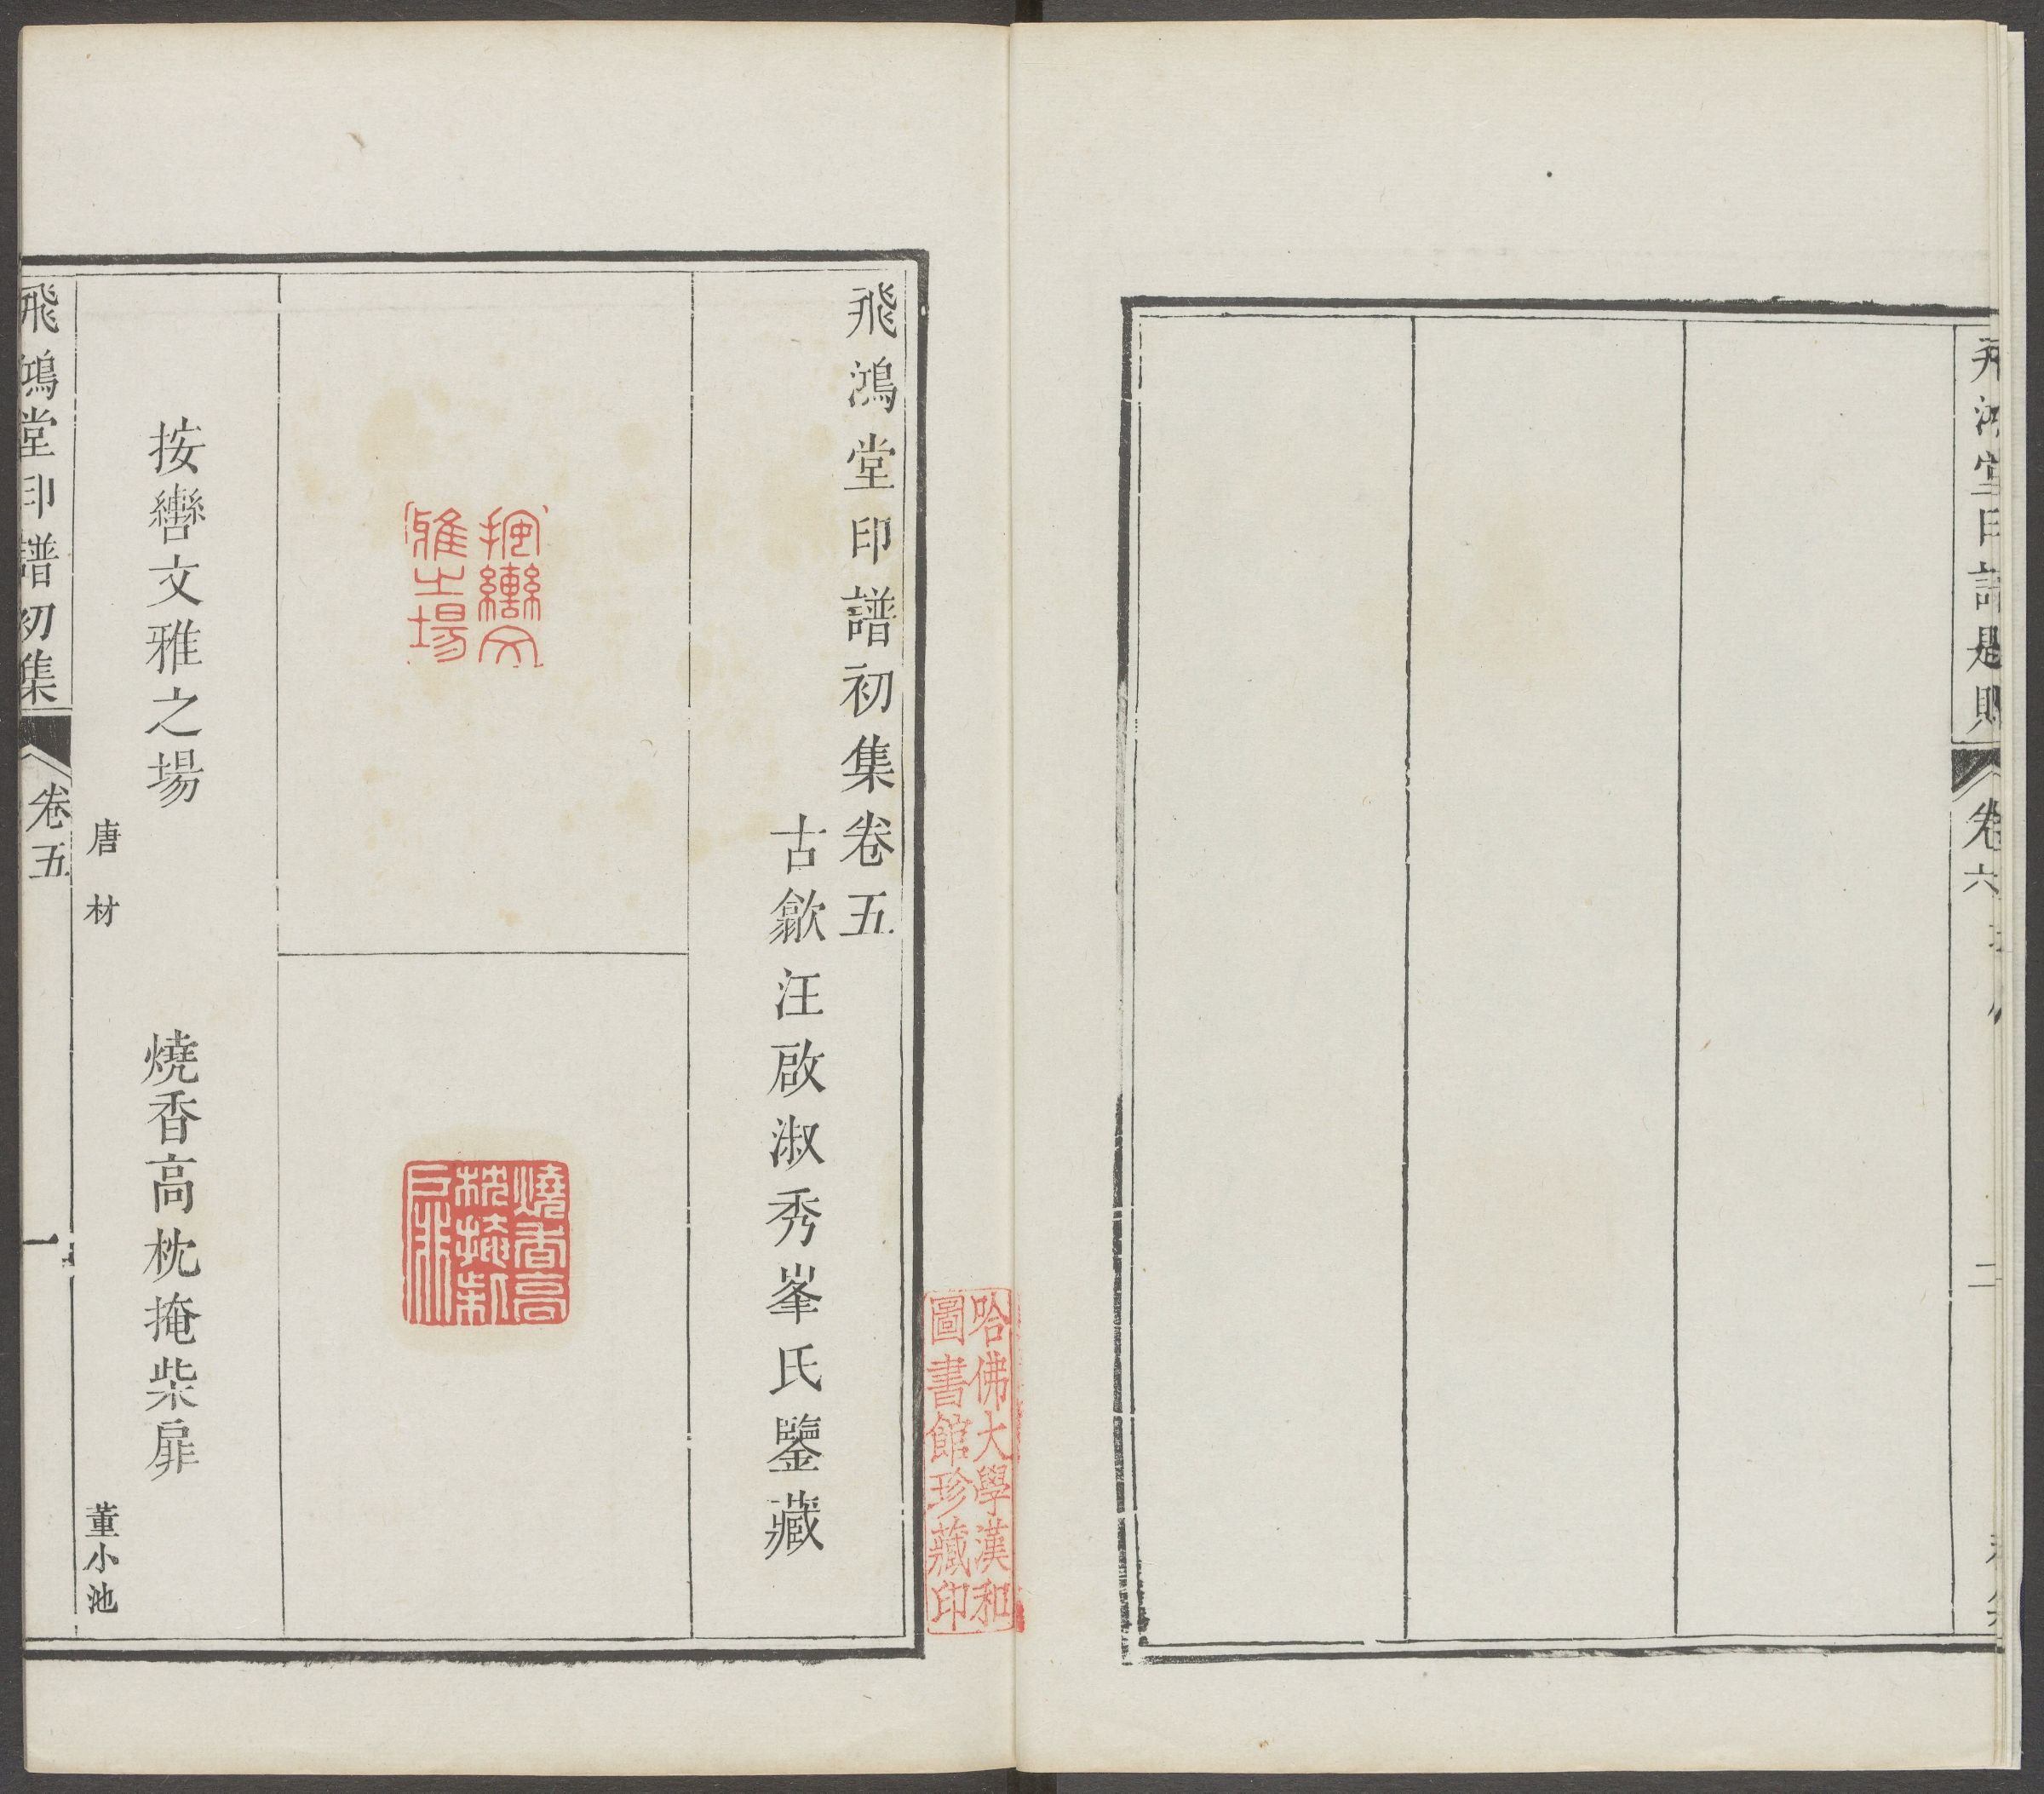 卷六
二
飛鴻堂印譜初集卷五
古歙汪啟淑秀峯氏鑒藏
按轡文雅之場
燒香高枕掩柴扉
按轡文雅之場
唐材
燒香高枕掩柴扉
董小池
飛鴻堂印譜初集
卷五
一
哈佛大學漢和
圖書館珍藏印